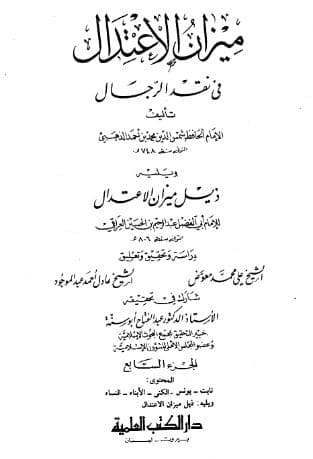 ميزان الاعتدال
في نقد الرجال
تأليف
الإمام الحافظ شمس الدين محمد بن أحمد الذهبي
المتوفى سنة ٧٤٨ هـ
ويليه
ذيل ميزان الاعتدال
للإمام أبي الفضل عبد الرحيم بن الحسين العراقي
المتوفى سنة ٨٠٦ هـ
دراسة وتحقيق وتعليق
الشيخ علي محمد معوض الشيخ عادل أحمد عبد الموجود
شارك في تحقيقه
الأستاذ الدكتور عبد الفتاح أبو سنة
خبير التحقيق بمجمع البحوث الإسلامية
وعضو المجلس الأعلى للشؤون الإسلامية
الجزء السابع
المحتوى:
نابت - يونس - الكنى - الأبناء - النساء
ويليه: ذيل ميزان الاعتدال
دار الكتب العلمية
بيروت - لبنان